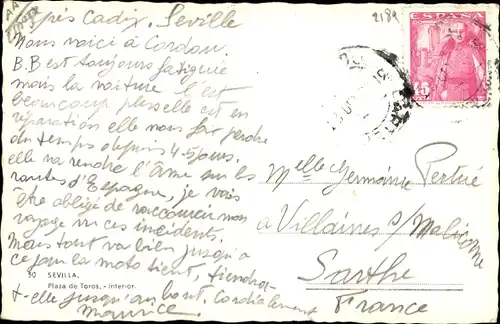 Après Cadiz, Seville
Nous voici à Cordou.
B.B est toujours fatiguée
mais la voiture l'est
beaucoup plus elle est en
réparation elle nous fait perdre
du temps depuis 4-5 jours.
elle va rendre l'Âme sur les
routes d'Espagne, je vais
être obligé de raccourcir mon
voyage vu ces incidents.
Mais tout va bien jusqu'à
ce jour la moto tient, tiendra-
t-elle jusqu'au bout. Cordialement
Maurice.
30 SEVILLA.
Plaza de Toros, - Interior.
2189
ESPAÑA
45
Melle Germaine Pertué
à Villaines s/ Malicorne
Sarthe
France